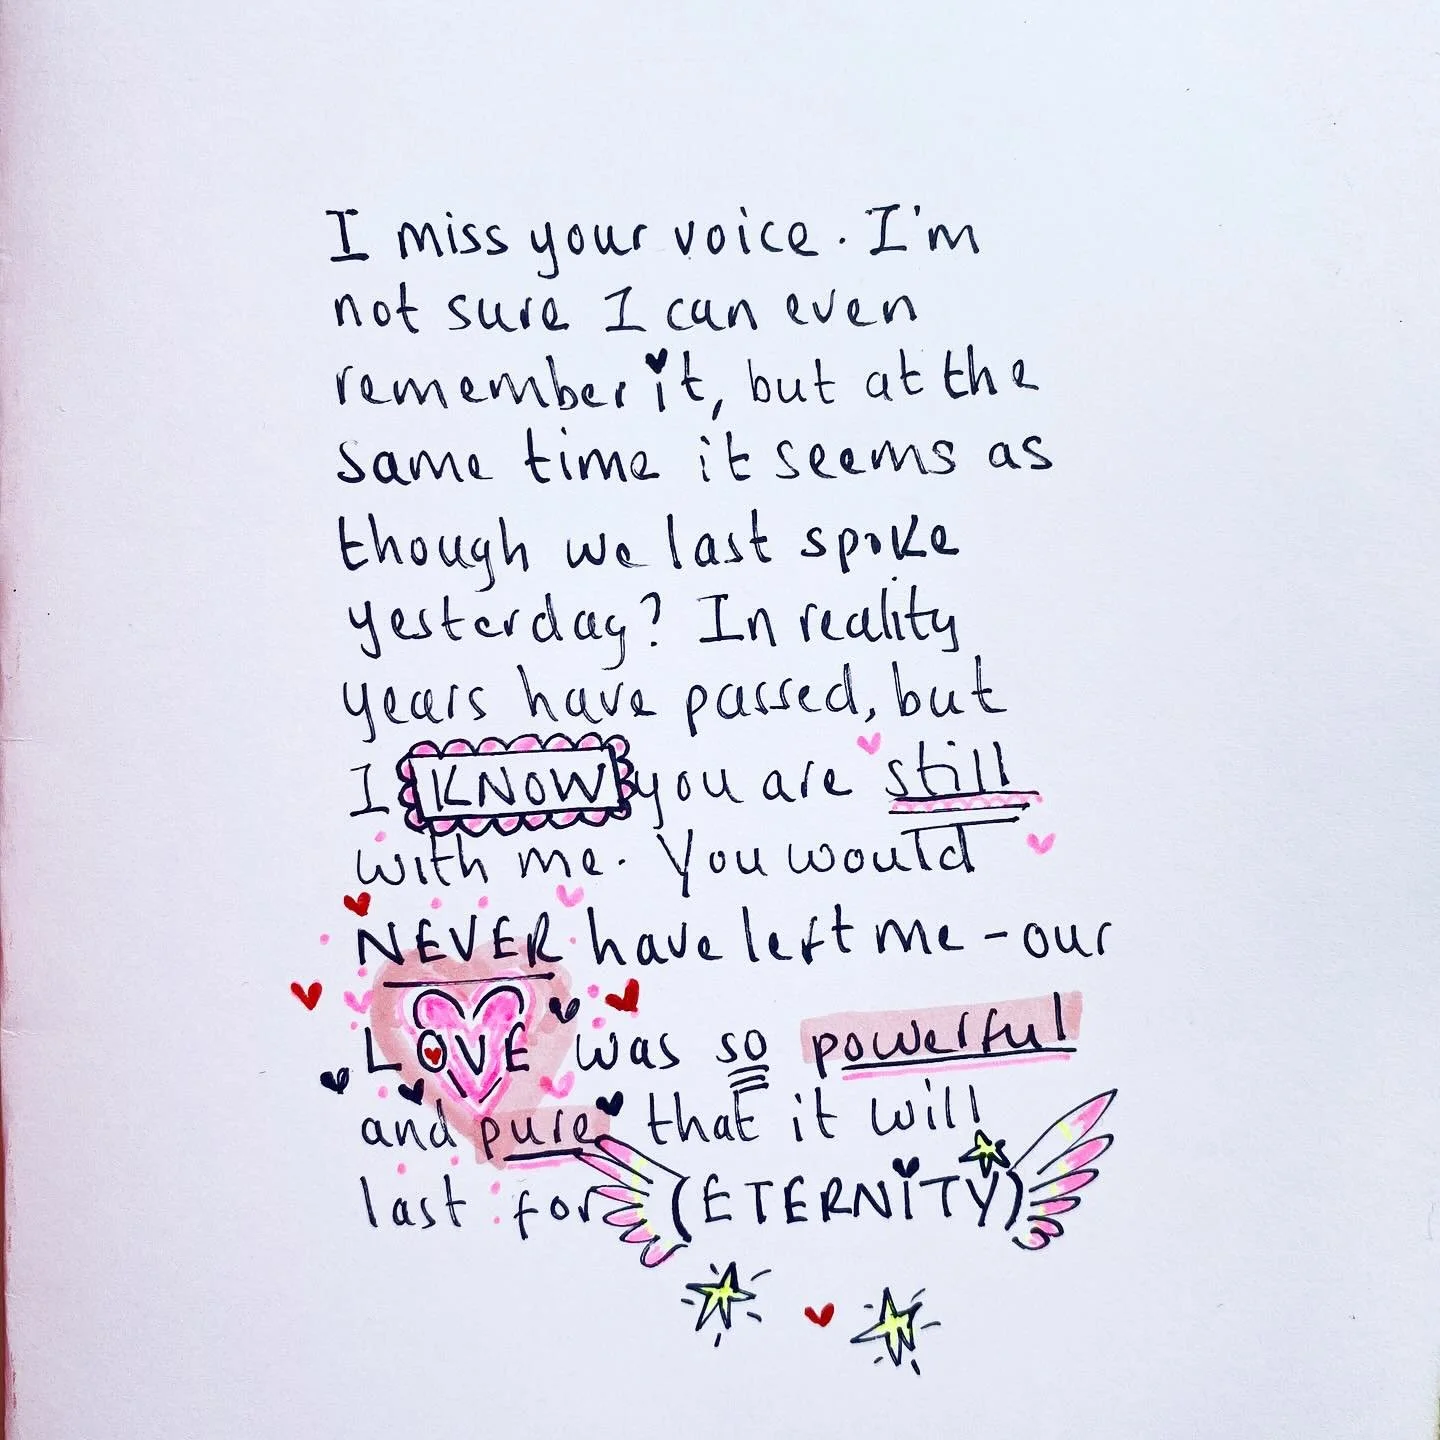 I miss your voice. I'm
not sure I can even
remember it, but at the
same time it seems as
though we last spoke
yesterday? In reality
years have passed, but
I KNOW you are still
with me. You would
NEVER have left me - our
LOVE was so powerful
and pure that it will
last for (ETERNITY)